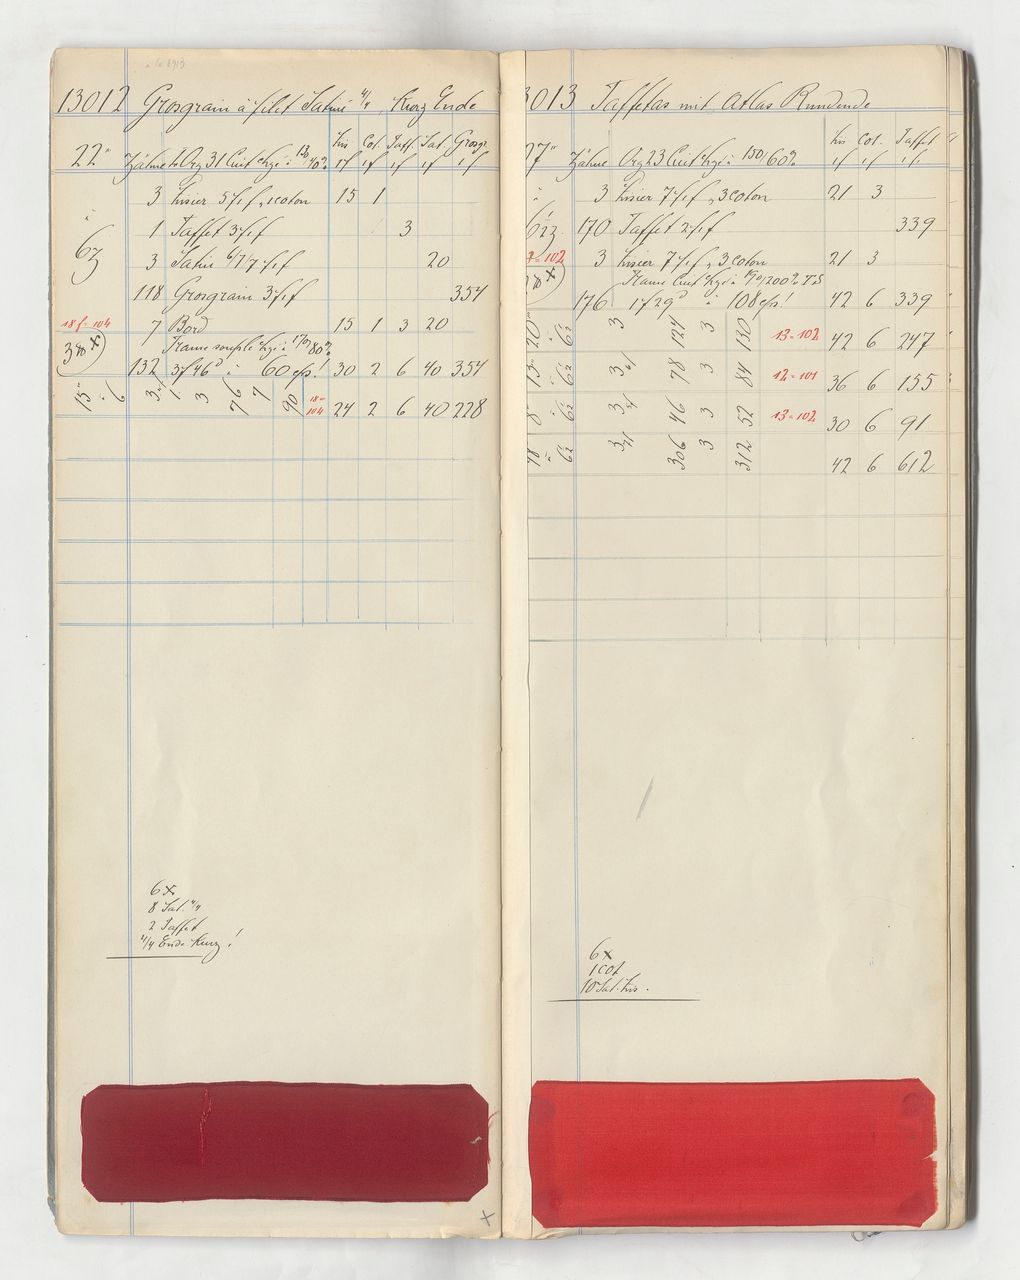 13012 Grosgrain à filet Satiné 4/4, Kurz Ende
lis Col. Taff. Sat. Grosgr.
22" Zähne Org 31 Cuit chgé à 40%
3 Lisier 5 f, 1 coton 15 1
1 Taffet 3 f 3
6z
3 Satin 6/7/7 f 20
118 Grosgrain 3 f 354
18 f = 104
7 Bord 15 1 3 20
38 x
Trame souplé chgé à 170/80%
132 3f 46d à 60 cps! 30 2 6 40 354
15" 6 3 1 3 76 7 90
18 = 104
24 2 6 40 228
6x
8 Sat. 4/4
2 Taffet
4/4 Ende Kurz!
3013 Taffetas mit Atlas Rundende
lis Col. Taffet
27" Zähne Org 23 Cuit chgé à 150/60%
3 Lisier 7 f, 3 coton 21 3
170 Taffet 2 f 339
= 102
3 Lisier 7 f, 3 coton 21 3
Trame Cuit chgé à 190/200% TS
176 1f 29d à 108 cps! 42 6 339
20" 6z 3 124 3 130 13 = 102 42 6 247
13" 6z 3 78 3 84 12 = 101 36 6 155
8" 6z 3 46 3 52 13 = 102 30 6 91
48" 6z 3 306 3 312 42 6 612
6x
1 cot
10 Sat. lis.